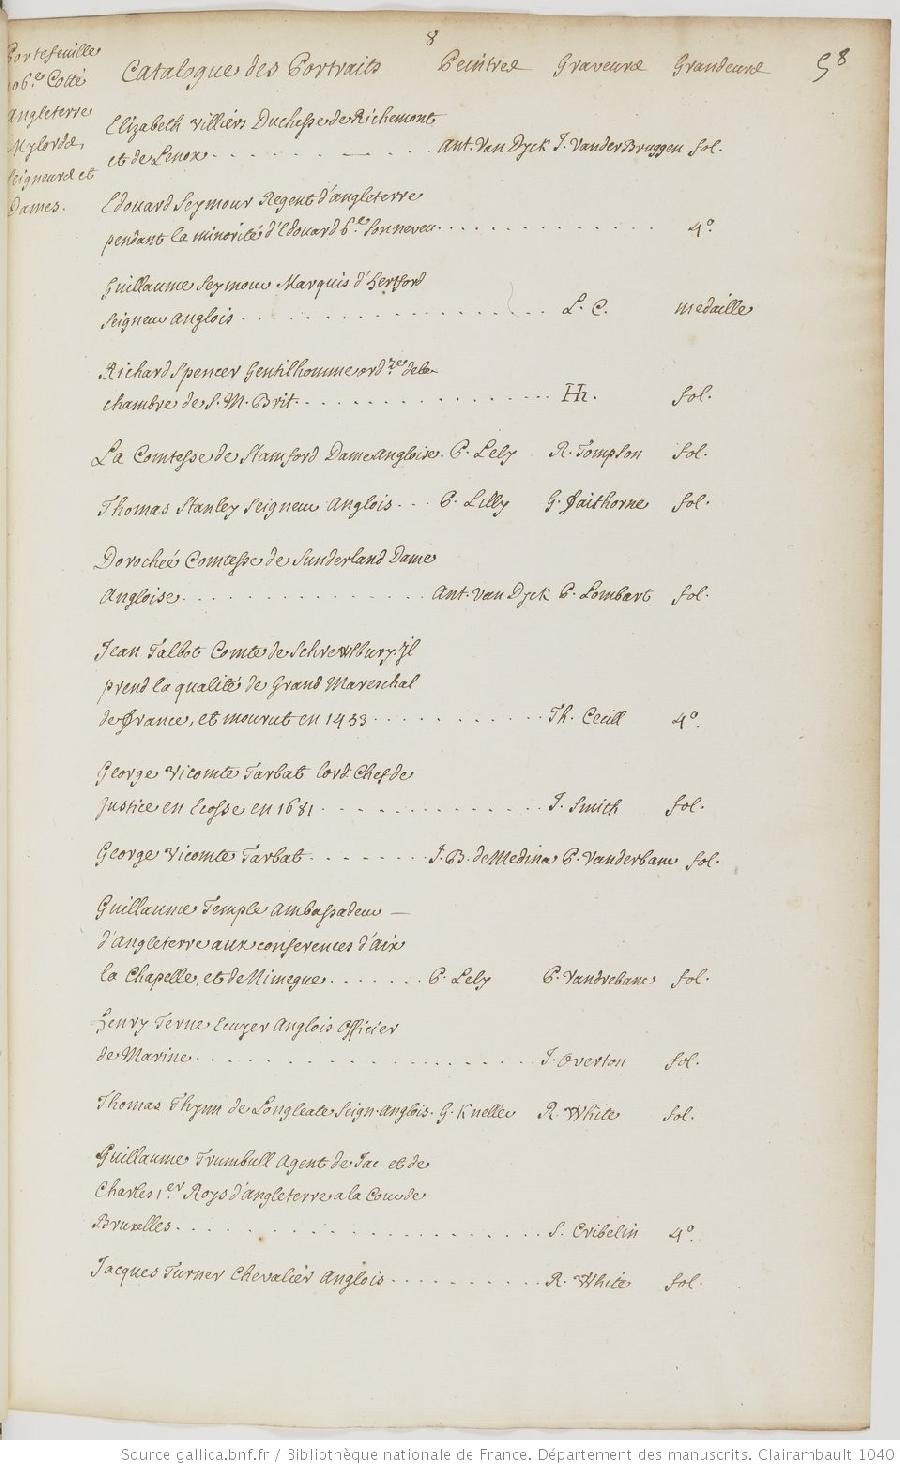 8
58
Portefeuille
106.e Cotté
Angleterre
Mylords,
Seigneurs et
Dames.
Catalogue des Portraits Peintres Graveurs Grandeurs
Elizabeth Villiers Duchesse de Richemont
et de Lenox. Ant. Van Dyck J. Vander Bruggen fol.
Edouard Seymour Regent d'angleterre
pendant la minorité d'Edouard 6.e son neveu. 4.o
Guillaume Seymour Marquis d'hertford
Seigneur anglois L. C. medaille
Richard Spencer Gentilhomme ord.re de la
chambre de S. M. Brit. fol.
La Comtesse de Stamford Dame angloise. P. Lely R. Tompson fol.
Thomas Stanley Seigneur Anglois. P. Lilly G. Faithorne fol.
Dorothée Comtesse de Sunderland Dame
Angloise. Ant. Van Dyck P. Lombart fol.
Jean Talbot Comte de Schrewlbury. Jl
prend la qualité de Grand Mareschal
de france, et mourut en 1433 Th. Cecill 4.o
George Vicomte Tarbat lord Chef de
Justice en Ecosse en 1681. J. Smith fol.
George Vicomte Tarbat. J. B. de Medina P. Vanderbanc fol.
Guillaume Temple Ambassadeur
d'Angleterre aux conferences d'aix
la Chapelle, et de Nimegue. P. Lely P. Vandrebanc fol.
Henry Terne Ecuyer Anglois Officier
de Marine. J. Overton fol.
Thomas Thynn de Longleate Seign. anglois. G. Kneller R. White fol.
Guillaume Trumbull Agent de Jac. et de
Charles 1.er Roys d'angleterre a la Cour de
Bruxelles. S. Gribelin 4.o
Jacques Turner Chevalier Anglois. R. White fol.
Source gallica.bnf.fr / Bibliothèque nationale de France. Département des manuscrits. Clairambault 1040